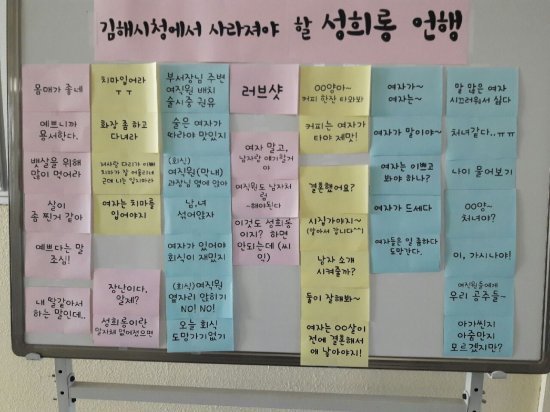 김해시청에서 사라져야 할 성희롱 언행
몸매가 좋네
예쁘니까
용서한다.
뱃살을 위해
많이 먹어라
살이
좀 찐거 같아
예쁘다는 말
조심!
내 딸같아서
하는 말인데..
치마입어라
ㅜㅜ
화장 좀 하고
다녀라
치마가 잘 어울리네
여자는 치마를
입어야지
장난이다.
알제?
성희롱이란
말자체 없어졌으면
부서장님 주변
여직원 배치
술시중 권유
술은 여자가
따라야 맛있지
(회식)
여직원(막내)
과장님 옆에 앉아
남,녀
섞어앉자
여자가 있어야
회식이 재밌지
(회식)여직원
옆자리 앉히기
NO! NO!
오늘 회식
도망가기 없기
러브샷
여자 말고,
남자랑 얘기할거야
여직원도 남자처럼
~해야된다
이것도 성희롱
이지? 하면
안되는데 (씨익)
OO양아~
커피 한잔 타와봐
커피는 여자가
타야 제맛!
결혼했어요?
시집가야지~
(알아서 갑니다^^)
남자 소개
시켜줄까?
둘이 잘해봐~
여자는 OO살이
전에 결혼해서
애 낳아야지!
여자가~
여자는~
여자가 말이야~
여자는 이쁘고
봐야 하나?
여자가 드세다
여자들은 일 좀하다
도망간다.
말 많은 여자
시끄러워서 싫다
처녀같다..ㅠㅠ
나이 물어보기
OO양~
처녀야?
이, 가시나야!
여직원들에게
우리 공주들~
아가씬지
아줌만지
모르겠지만?